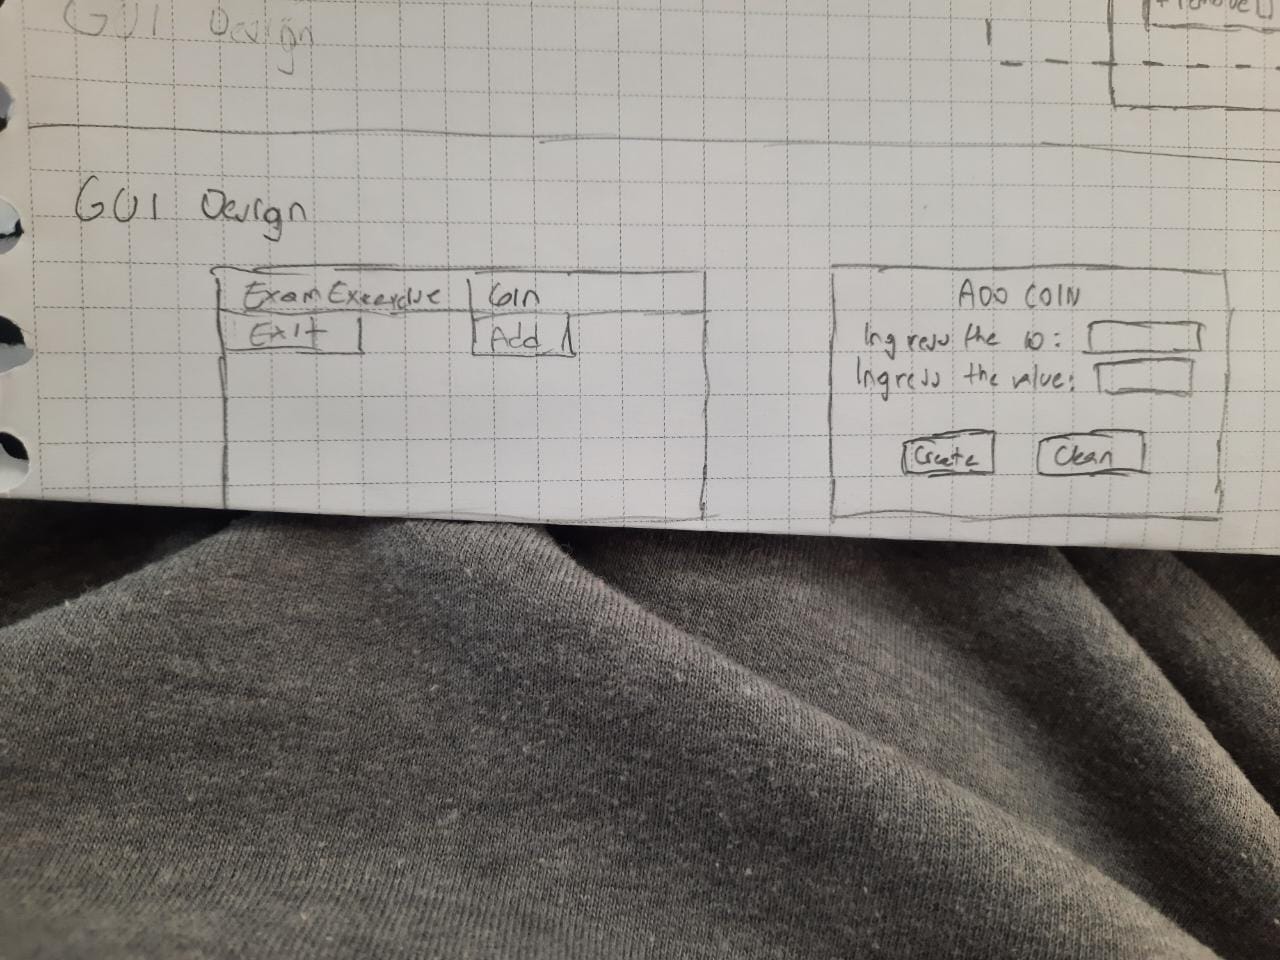 GUI Design
+ remove()
GUI Design
Exam Excercise
Coin
Exit
Add
ADD COIN
Ingress the ID:
Ingress the value:
Create
Clean